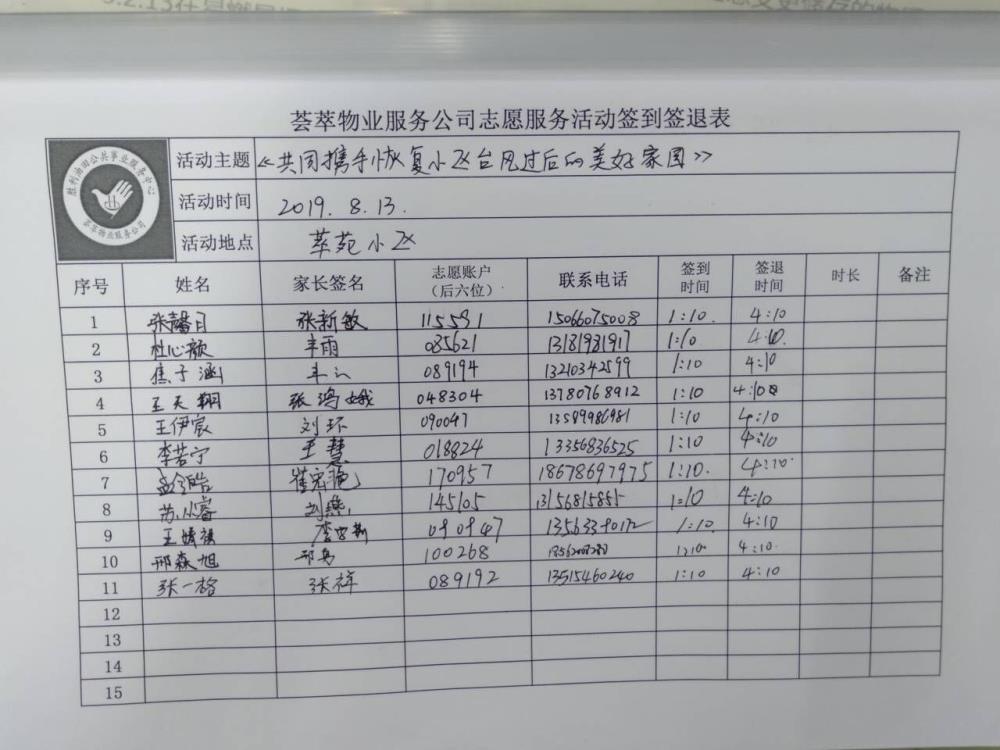 荟萃物业服务公司志愿服务活动签到签退表
胜利油田公共事业服务中心
荟萃物业服务公司
活动主题 《共同携手恢复小区台风过后的美好家园》
活动时间 2019. 8. 13.
活动地点 萃苑小区
序号 姓名 家长签名 志愿账户（后六位） 联系电话 签到时间 签退时间 时长 备注
1 张馨日 张新敏 115531 15066075008 1:10. 4:10
2 杜心颜 丰雨 085621 13181981917 1:10 4:10.
3 焦子涵 089194 13210342599 1:10 4:10
4 王天翔 张鸿娥 048304 13780768912 1:10 4:10
5 王伊宸 刘环 090047 13589986981 1:10 4:10
6 李若宁 王慧 018824 13356836525 1:10 4:10
7 170957 18678697975 1:10. 4:10.
8 刘燕 145105 1:10 4:10
9 090947 1:10. 4:10
10 邢森旭 100268 4:10.
11 张一格 张祥 089192 13515460240 1:10 4:10
12
13
14
15